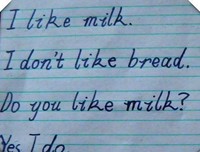 I like milk.
I don't like bread.
Do you like milk?
Yes I do